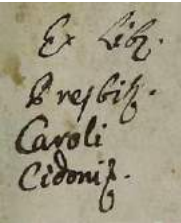 Ex Libꝫ.
Presbiꝫ.
Caroli
Cidoniꝫ.